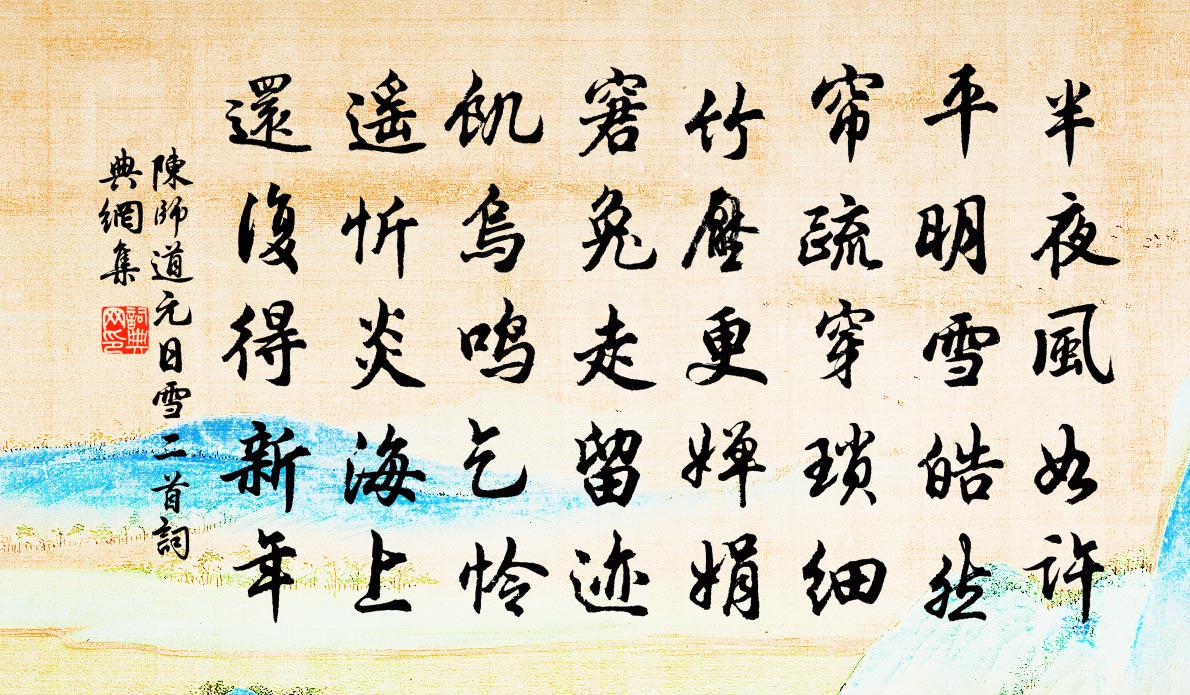 半夜風如許
平明雪皓然
帘疏穿瑣细
竹壓更嬋娟
窘兔走留迹
飢烏鸣乞怜
遥忻炎海上
還復得新年
陳師道元日雪二首詞
典網集
詞典
网印